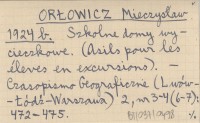 ORŁOWICZ Mieczysław
1924 b. Szkolne domy wy-
cieczkowe. (Asils pour les
élèves en excursions). —
Czasopismo Geograficzne (Lwów-
-Łódź-Warszawa) 2, nr 3-4 (6-7):
472-475.